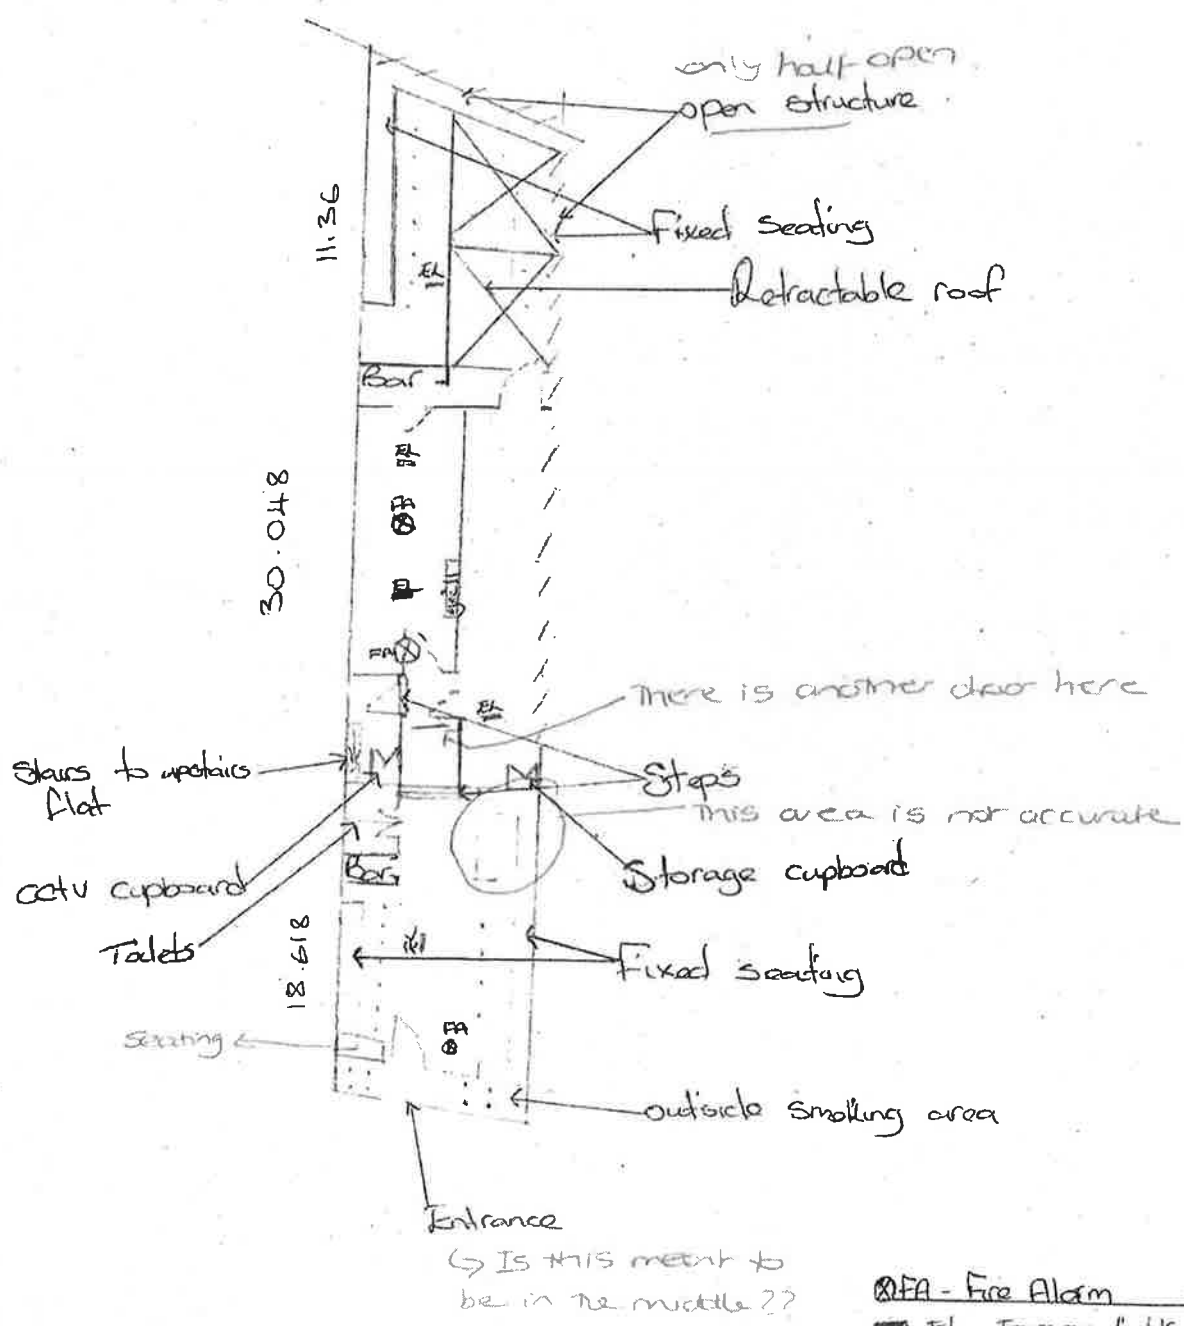 only half open
open structure
11.36
Fixed seating
EL
Retractable roof
Bar
EL
FA
30.048
EL
FA
There is another door here
EL
Stairs to upstairs
flat
Steps
This area is not accurate
Bar
Storage cupboard
cctv cupboard
Toilets
18.618
Fixed seating
FA
Seating
outside smoking area
Entrance
Is this meant to
be in the middle??
FA - Fire Alarm